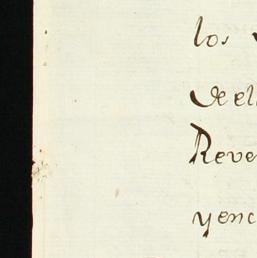 los
de el
Reve
yenc